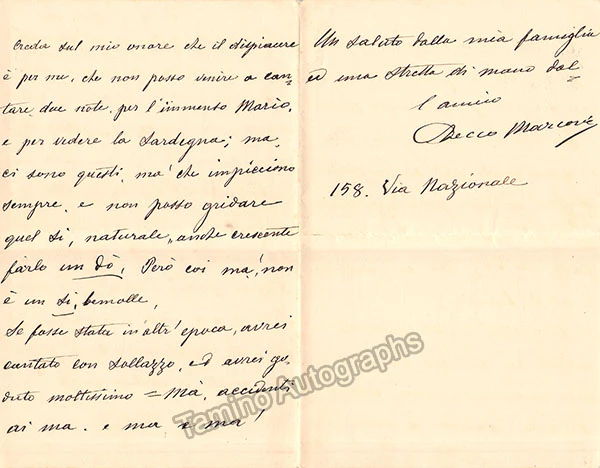 Creda sul mio onore che il dispiacere
è per me, che non posso venire a can=
tare due note, per l'immenso Mario,
e per vedere la Sardegna; ma,
ci sono questi, ma che impicciono
sempre, e non posso gridare
quel Si, naturale, anche crescente
farlo un dò, Però coi ma, non
è un Si, bemolle,
Se fosse stata in altr'epoca, avrei
cantato con sollazzo, ed avrei go=
duto moltissimo = Mà, accidenti
ai ma. e ma e ma!
Un saluto dalla mia famiglia
ed una stretta di mano dal=
l'amico
Checco Marconi
158. Via Nazionale
Tamino Autographs